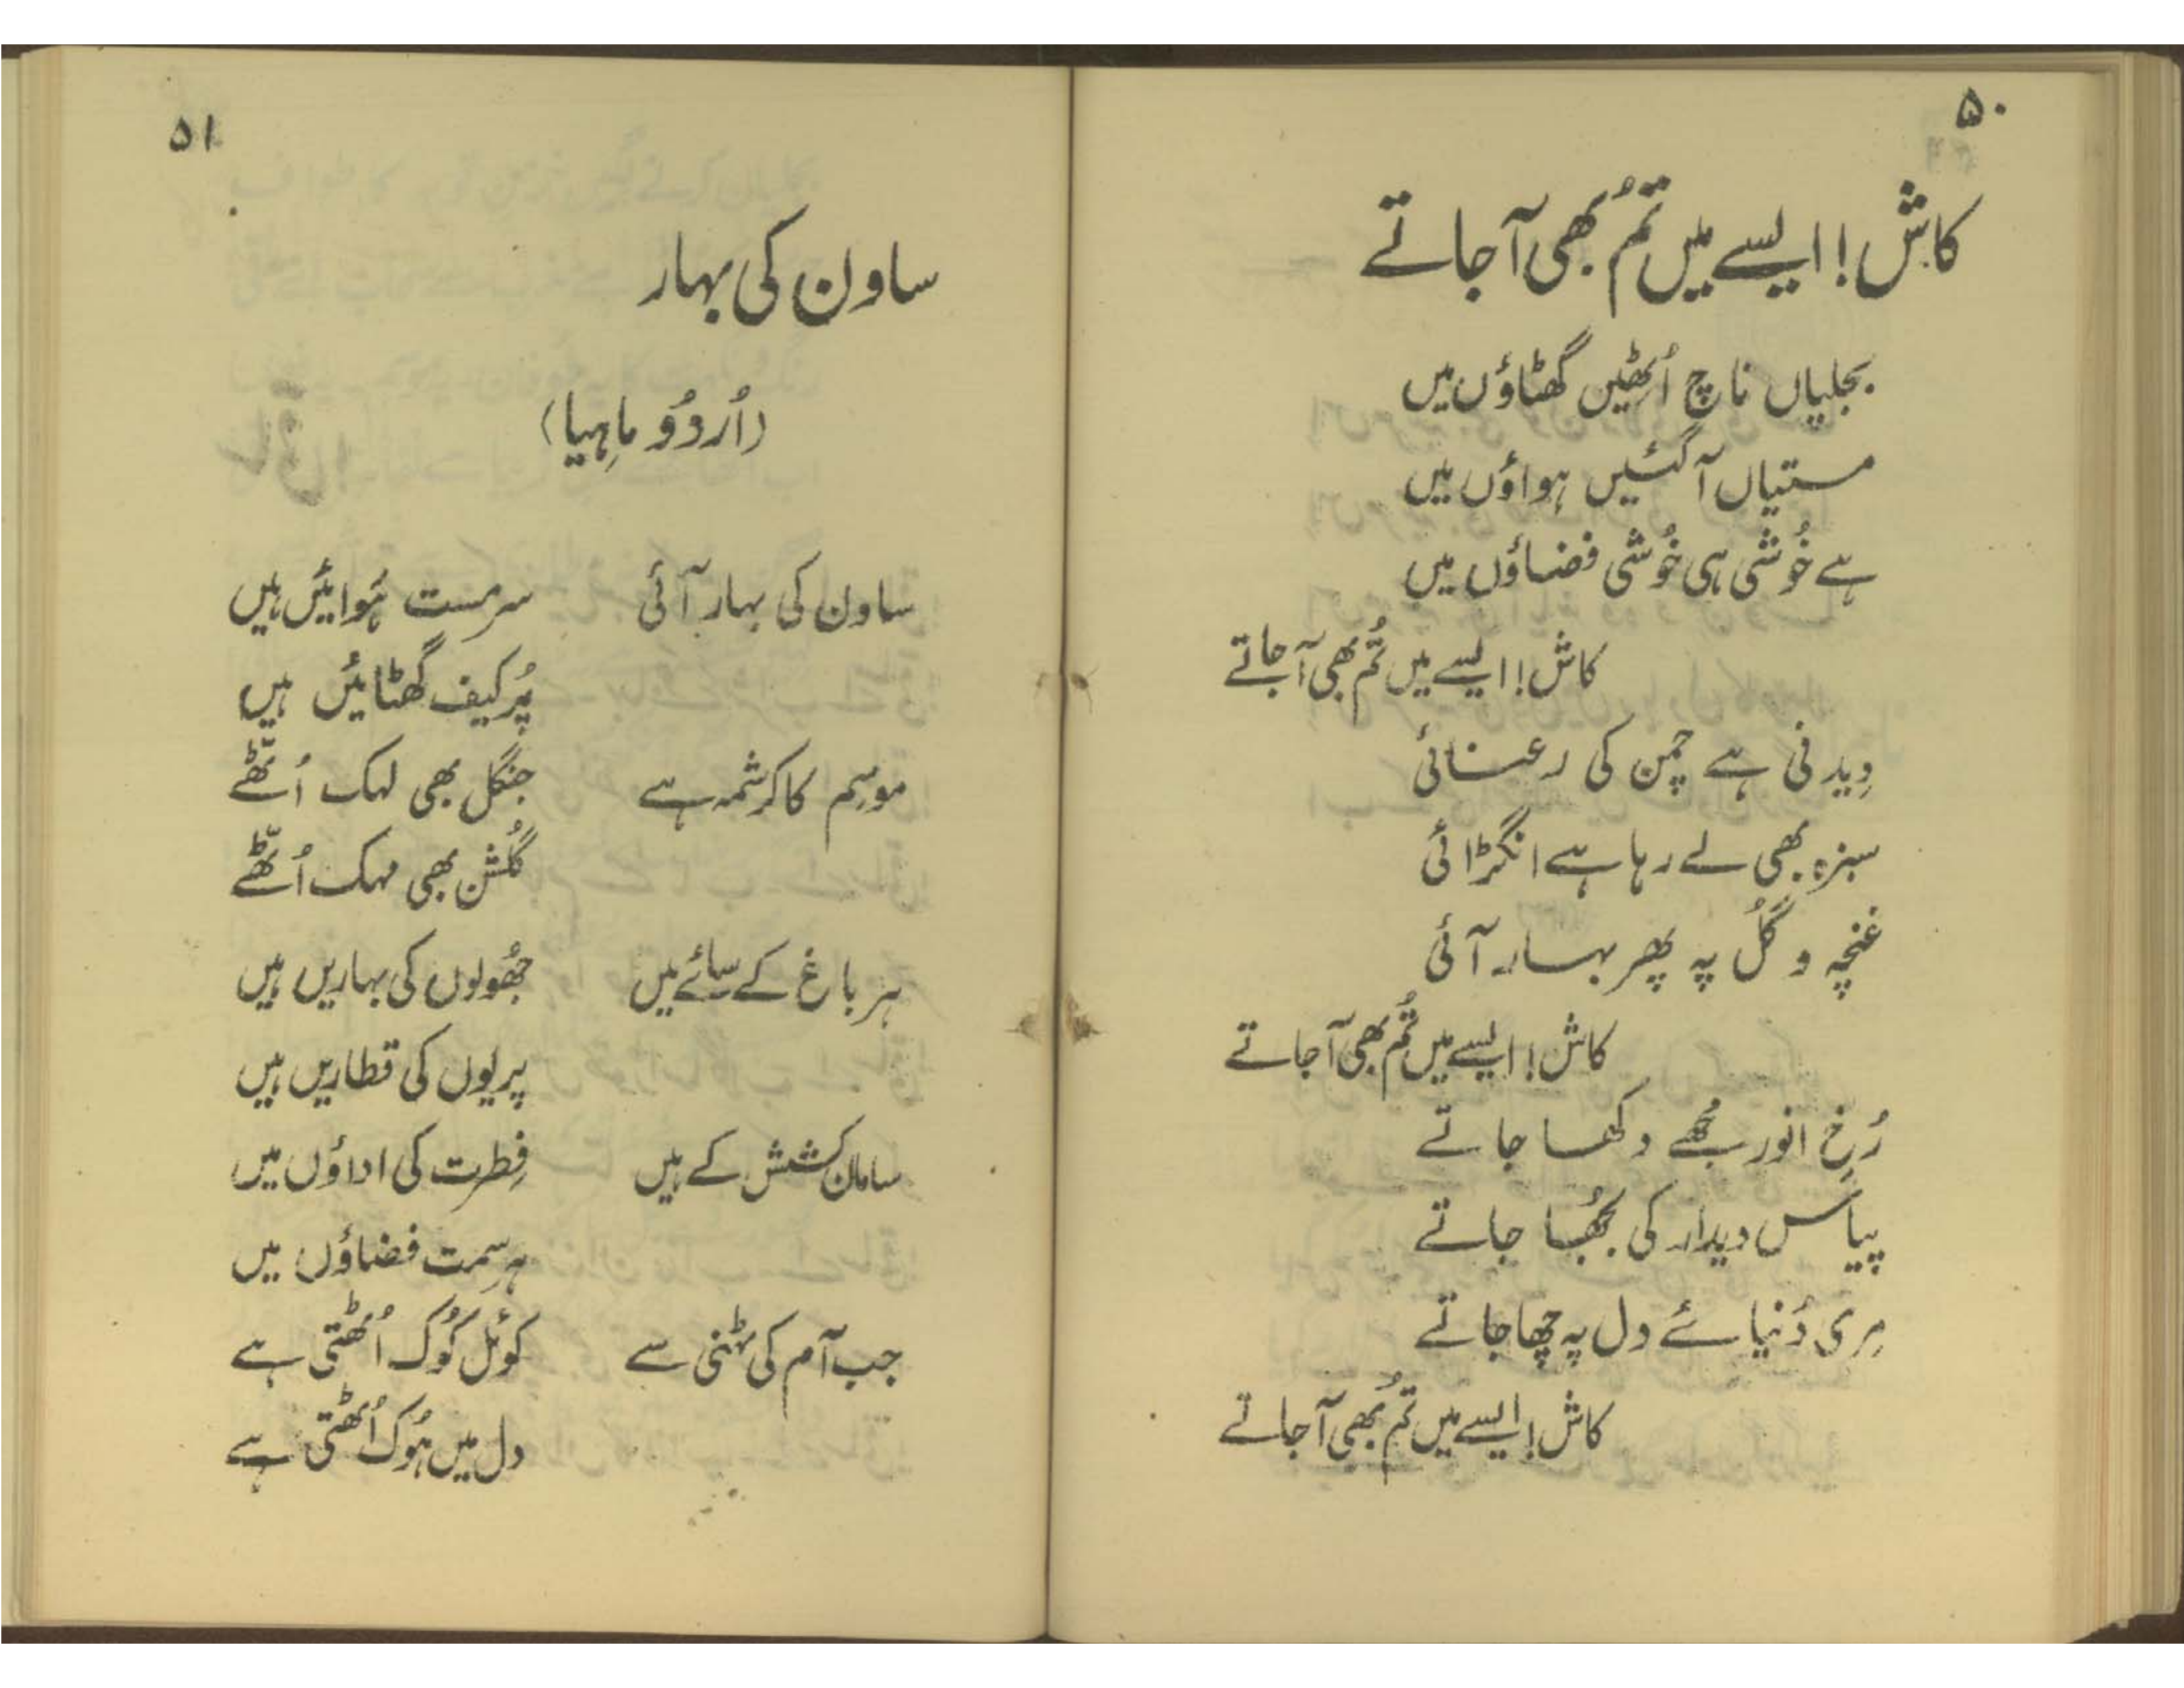 ۵۰
کاش! ایسے میں تُم بھی آ جاتے
بجلیاں ناچ اُٹھیں گھٹاؤں میں
مستیاں آ گئیں ہواؤں میں
ہے خُوشی ہی خُوشی فضاؤں میں
کاش! ایسے میں تُم بھی آ جاتے
دِیدنی ہے چمن کی رعنائی
سبزہ بھی لے رہا ہے انگڑائی
غنچہ و گُل پہ پھر بہار آئی
کاش! ایسے میں تُم بھی آ جاتے
رُخِ انور مجُھے دکھا جاتے
پیاس دیدار کی بُجھا جاتے
مِری دُنیائے دل پہ چھا جاتے
کاش! ایسے میں تُم بھی آ جاتے
۵۱
ساون کی بہار
(اُردوُ ماہِیا)
ساون کی بہار آئی سرمست ہَوائیں ہیں
پُرکیف گھٹائیں ہیں
موسِم کا کرشمہ ہے جنگل بھی لہک اُٹّھے
گُلشن بھی مہک اُٹّھے
ہر باغ کے سائے میں جُھولوں کی بہاریں ہیں
پریوں کی قطاریں ہیں
سامان کشش کے ہیں فِطرت کی اداؤں میں
ہر سِمت فضاؤں میں
جب آم کی ٹہنی سے کوئل کُوک اُٹھتی ہے
دل میں ہُوک اُٹھتی ہے